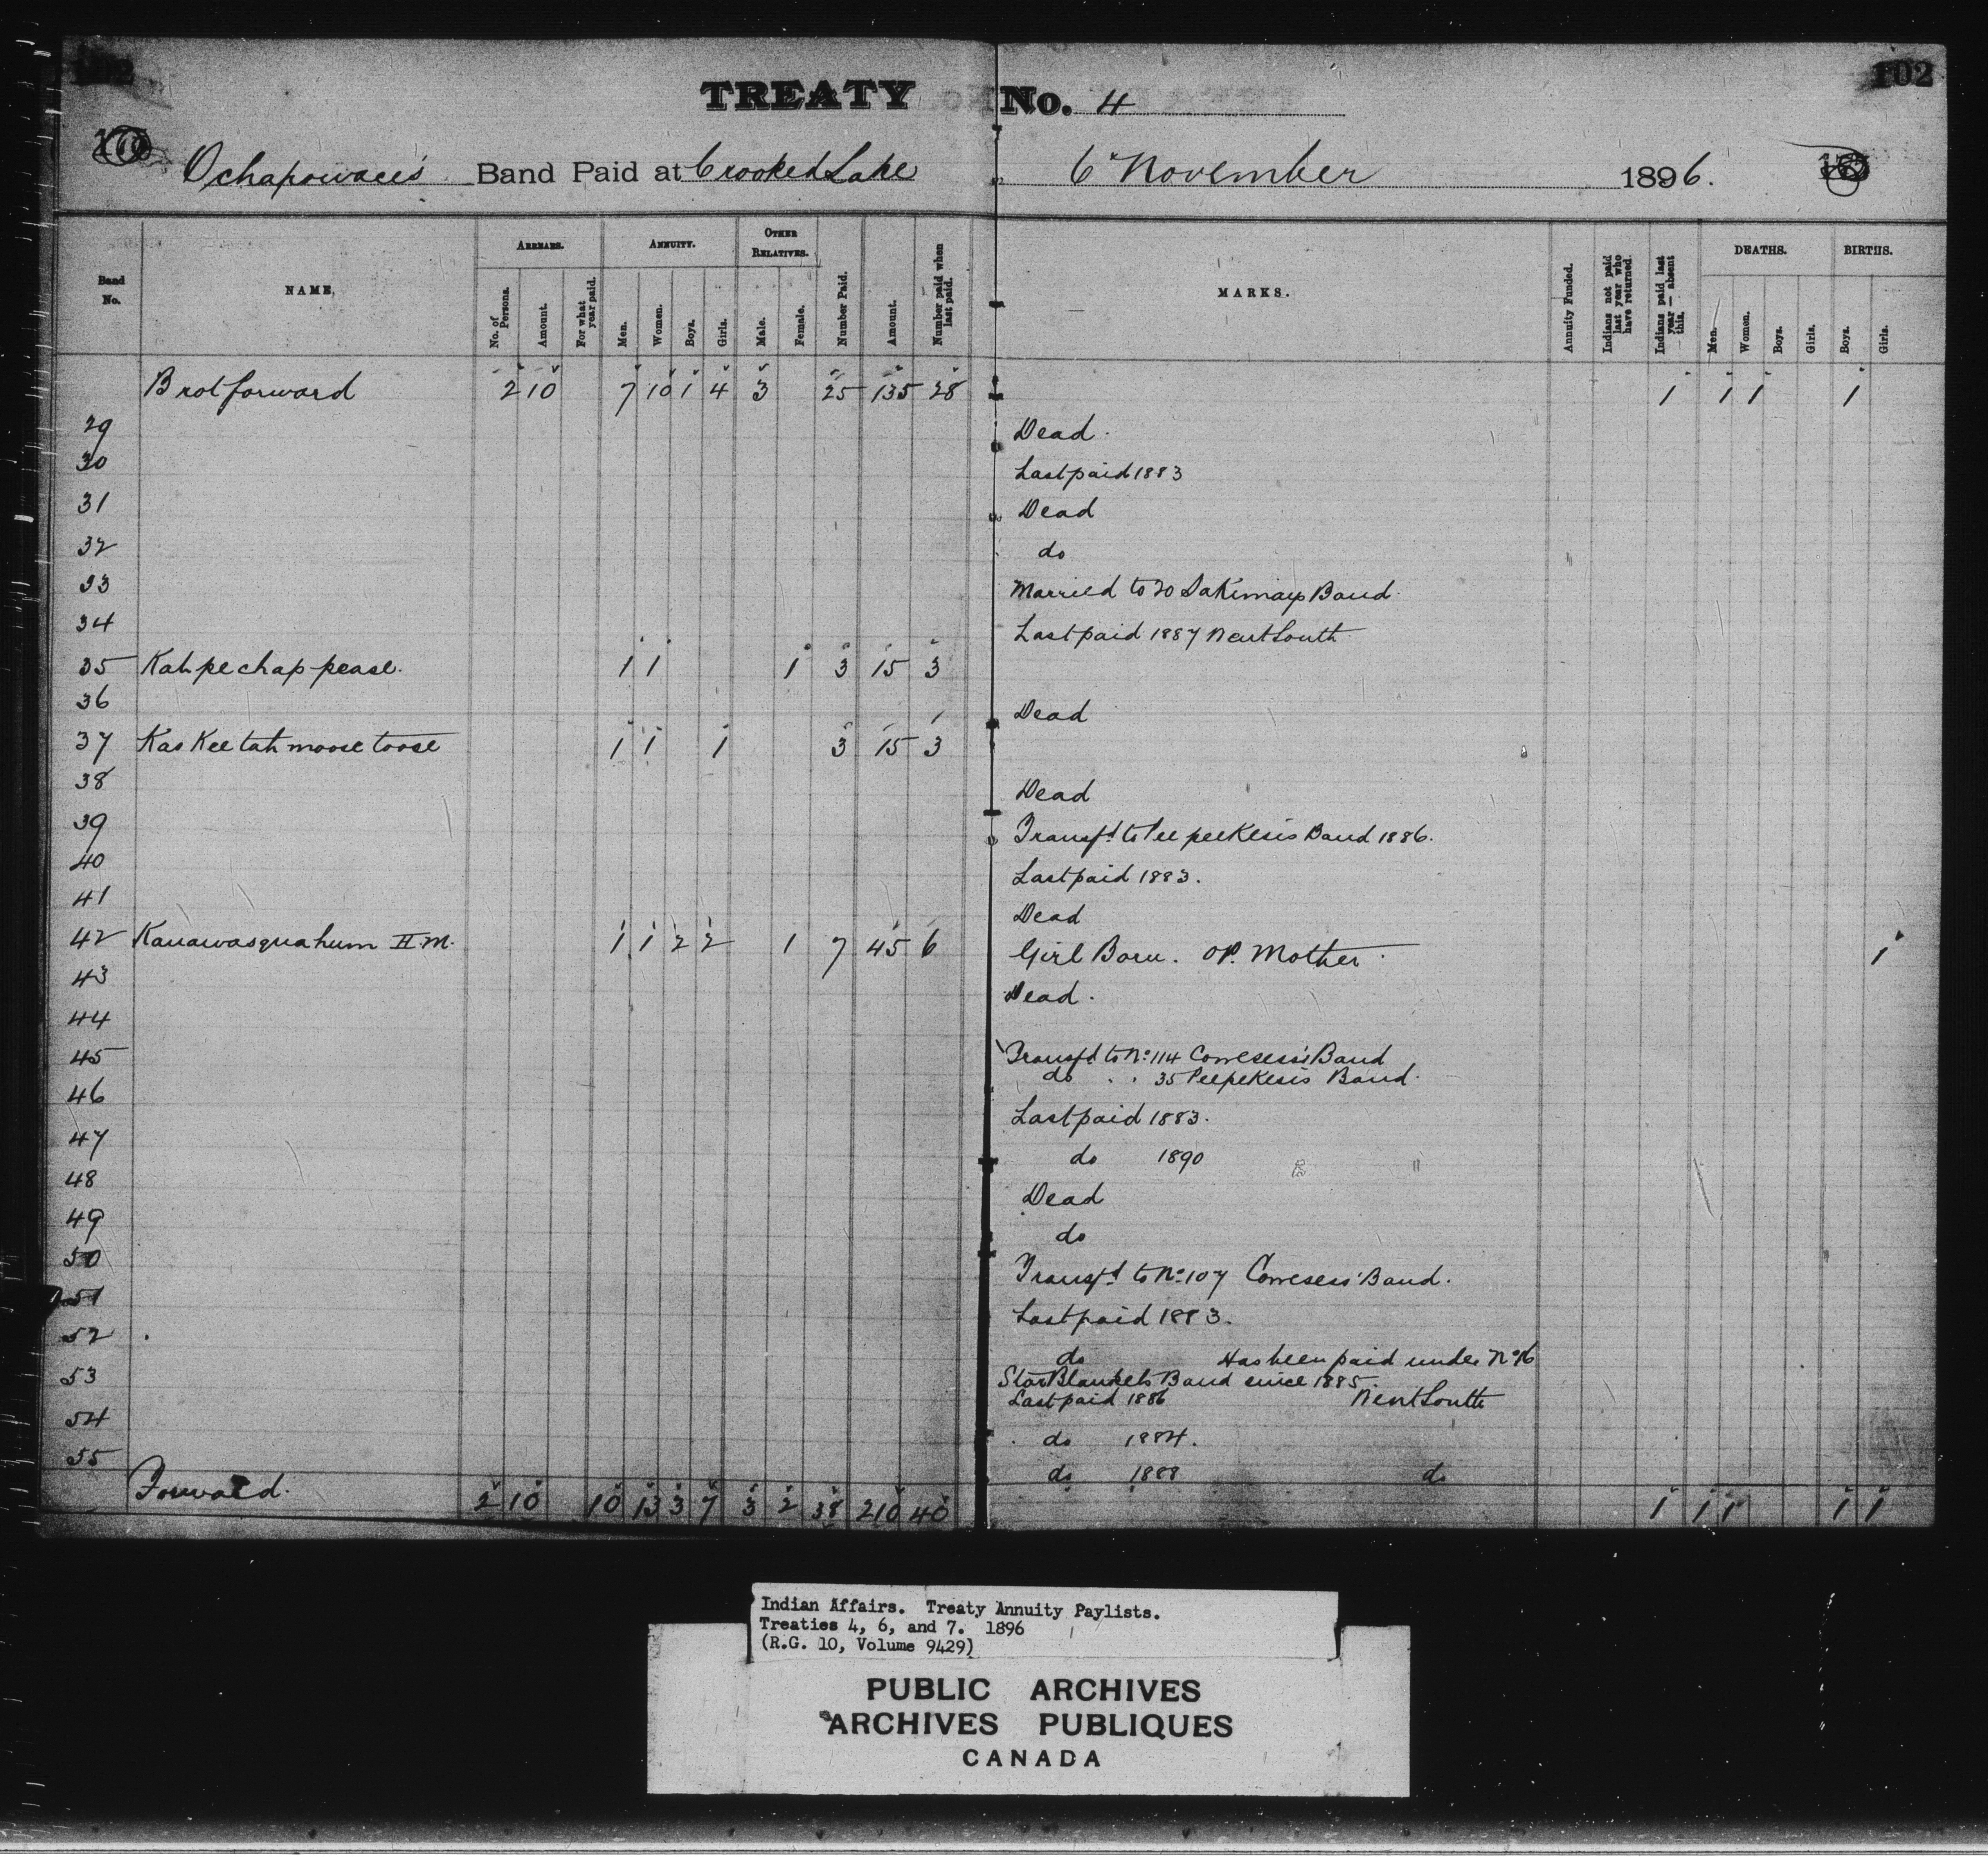 102
TREATY No. 4
102
Ochapowace's Band Paid at Crooked Lake 6" November 1896.
Band No. NAME. ARREARS. ANNUITY. OTHER RELATIVES. MARKS. DEATHS. BIRTHS.
No. of Persons. Amount. For what year paid. Men. Women. Boys. Girls. Male. Female. Number Paid. Amount. Number paid when last paid. Annuity Funded. Indians not paid last year who have returned. Indians paid last year — absent this. Men. Women. Boys. Girls. Boys. Girls.
Brot forward 2 10 7 10 1 4 3 25 135 28 1 1 1 1
29 Dead.
30 Last paid 1883
31 Dead
32 do
33 Married to 20 Sakimays Band.
34 Last paid 1887 Went South
35 Kah pe chap pease. 1 1 1 3 15 3
36 Dead
37 Kas Kee tah moose toose 1 1 1 3 15 3
38 Dead
39 Transfd to Pee peeKesis Band 1886.
40 Last paid 1883.
41 Dead
42 Kanawasquahum H.M. 1 1 2 2 1 7 45 6 Girl Born. OP. Mother. 1
43 Dead.
44
45 Transfd to No 114 Cowesess's Band
do . . 35 PeepeKesis Band.
46 Last paid 1883.
47 do 1890
48 Dead
49 do
50 Transfd to No 107 Cowesess' Band.
51 Last paid 1883.
52 do Has been paid under No 16
53 Star Blankets Band since 1885.
Last paid 1886 Went South
54 do 1884.
55 do 1888 do
Forward. 2 10 10 13 3 7 3 2 38 210 40 1 1 1 1 1
Indian Affairs. Treaty Annuity Paylists.
Treaties 4, 6, and 7. 1896
(R.G. 10, Volume 9429)
PUBLIC ARCHIVES
ARCHIVES PUBLIQUES
CANADA